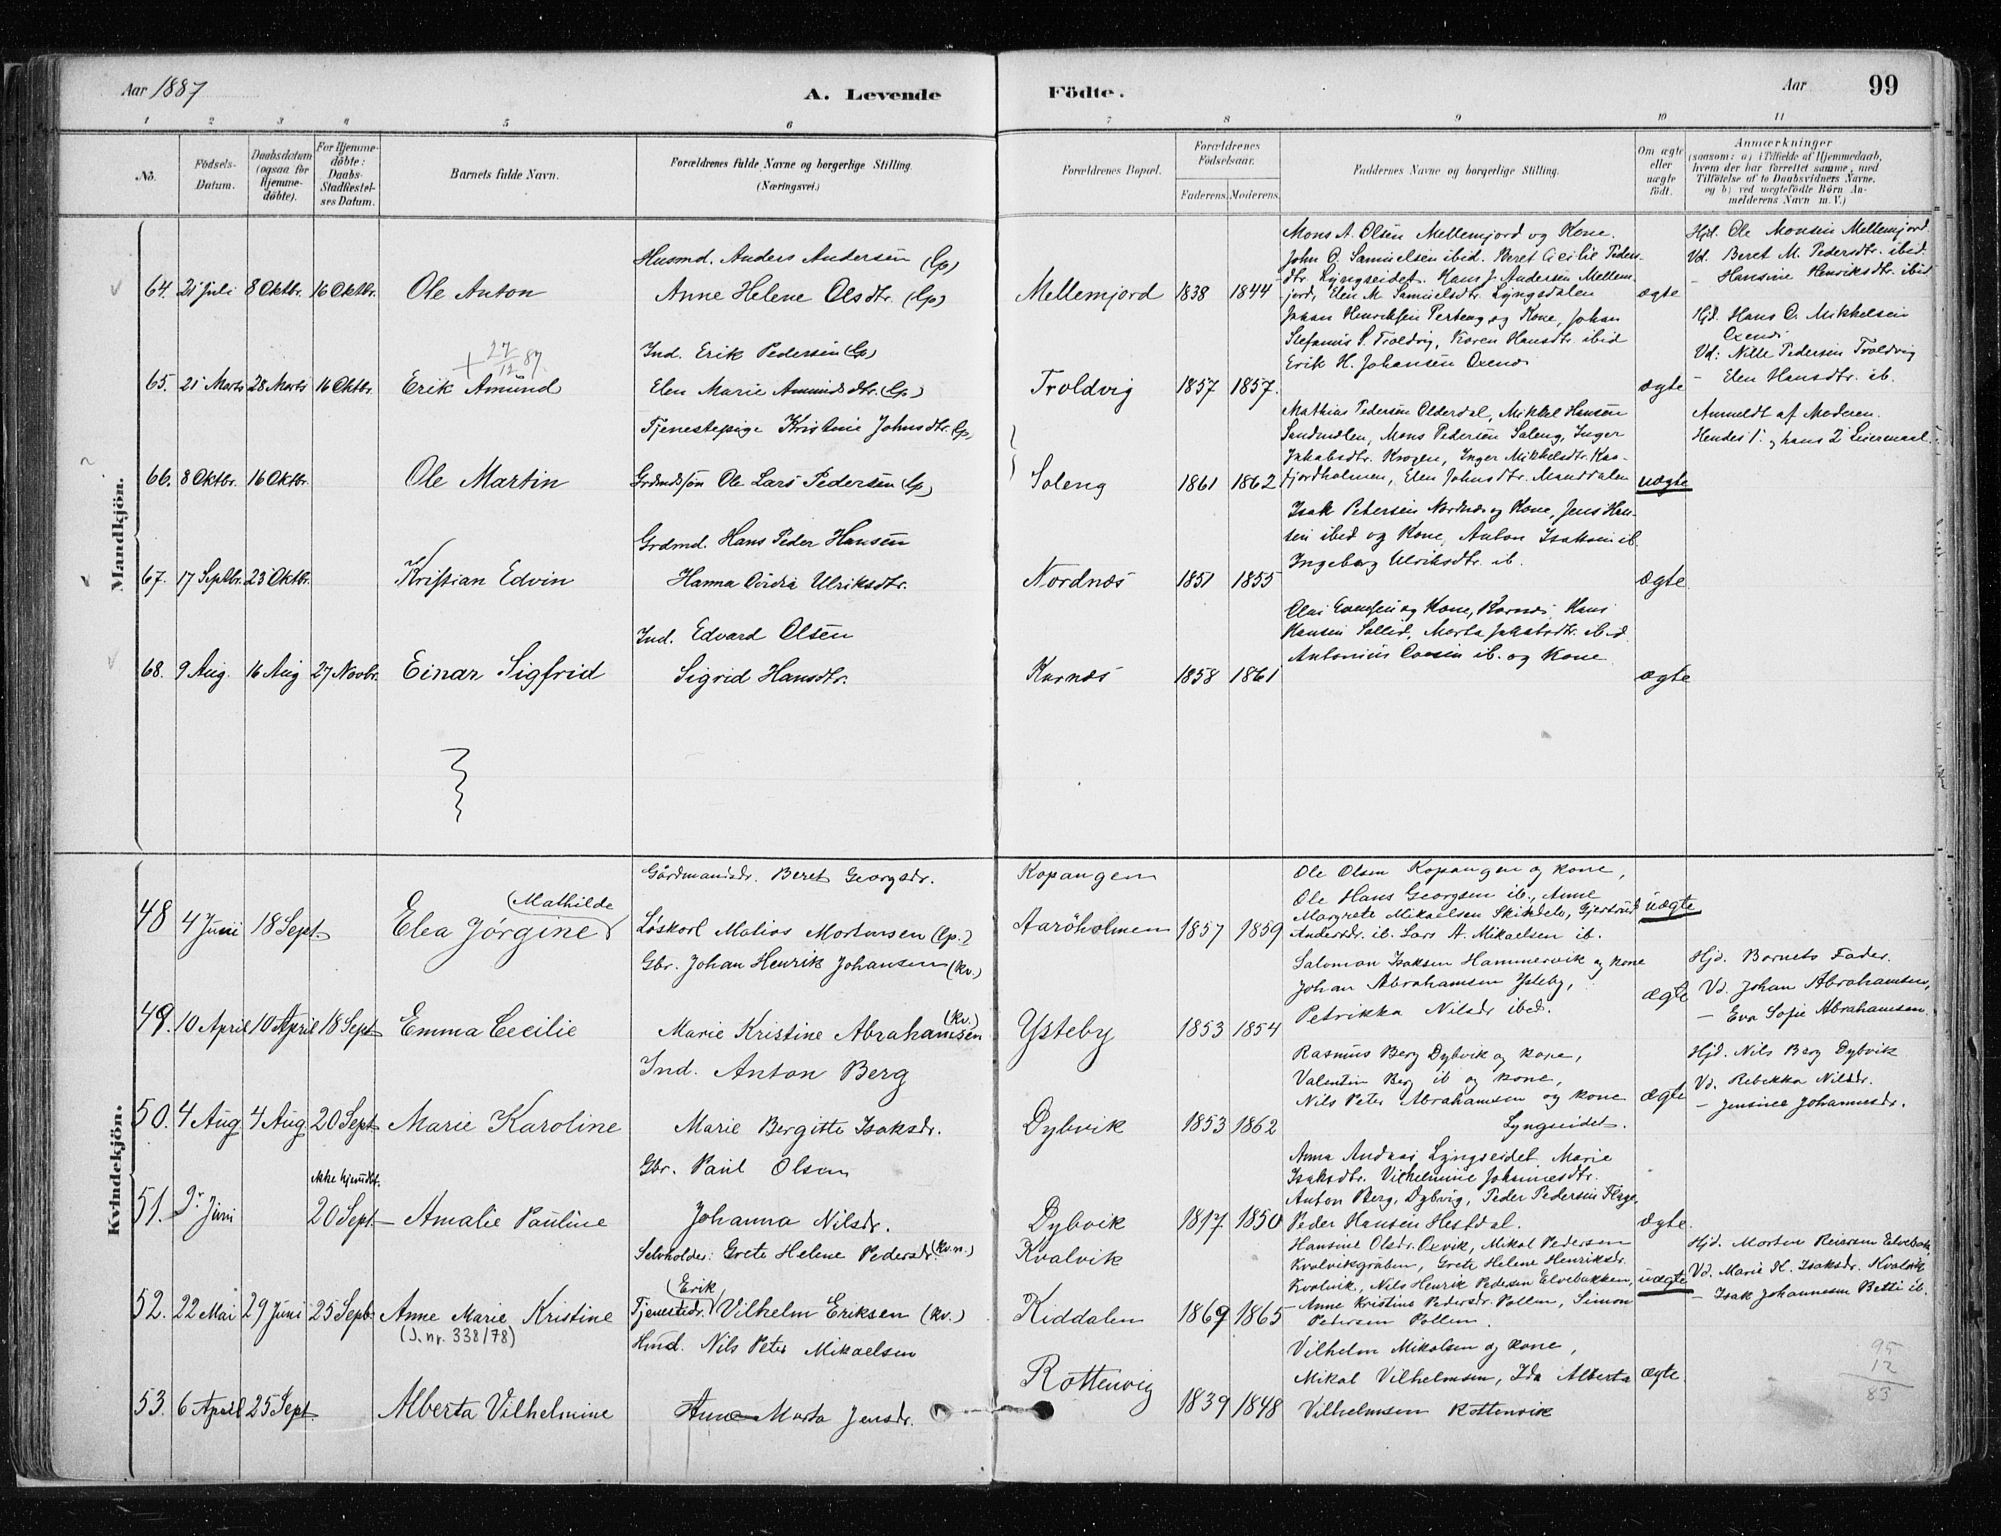 Aar 1887
A. Levende Födte.
Aar 99
1 2 3 4 5 6 7 8 9 10 11
No.
Födsels-Datum.
Daabsdatum (ogsaa for Hjemmedöbte).
For Hjemmedöbte: Daabs-Stadfestelses Datum.
Barnets fulde Navn.
Forældrenes fulde Navne og borgerlige Stilling. (Næringsvei.)
Forældrenes Bopæl.
Forældrenes Fødselsaar.
Faderens. Moderens.
Faddernes Navne og borgerlige Stilling.
Om ægte eller uægte født.
Anmærkninger
(saasom: a) i Tilfælde af Hjemmedaab,
hvem der har forrettet samme, med
Tilföielse af to Daabsvidners Navne.
og b) ved uægtefödte Börn An-
melderens Navn m. V.)
Mandkjön.
64. 21 Juli 8 Oktbr. 16 Oktbr. Ole Anton
Husmd. Anders Andersen (lp)
Anne Helene Olsdtr. (lp)
Mellemjord 1838 1844
Mons A. Olsen Mellemjord og Kone.
John O. Samuelsen ibid. Beret Cecilie Peders-
dtr. Lyngseidet. Hans J. Andersen Mellem-
jord, Elen M. Samuelsdtr. Lyngsdalen
ægte
Hjd. Ole Monsen Mellemjord.
Vd. Beret M. Pedersdtr. ibid.
— Hansine Henriksdtr. ibid
65. 21 Marts 28 Marts 16 Oktbr. Erik Amund
+ 27/12 87
Ind. Erik Pedersen (lp)
Elen Marie Amundsdtr. (lp)
Troldvig 1857 1857.
Johan Henriksen Perteng og Kone, Johan
Stefanus S. Troldvig, Karen Hansdtr ibid
Erik H. Johansen Oxenæs
ægte
Hjd. Hans O. Mikkelsen
Vd: Nille Pedersen Troldvig
— Elen Hansdtr. ib.
66. 8 Oktbr. 16 Oktbr. Ole Martin
Tjenestepige Kristine Johnsdtr. (lp)
Grdmdssøn Ole Lars Pedersen (lp)
Soleng 1861 1862
Mathias Pedersen Olderdal, Mikkel Hansen
Sandmælen, Mons Pedersen Soleng, Inger
Jakobsdtr. Krogen, Inger Mikkelsdtr. Kaa-
fjordholmen, Elen Johnsdtr. Manddalen
uægte
Anmeldt af Moderen.
Hendes 1. og hans 2 Leiermaal.
67. 17 Septbr. 23 Oktbr. Kristian Edvin
Grdmd. Hans Peder Hansen
Hanna Ulriksdtr.
Nordnæs 1851 1855
Isak Petersen Nordnæs og Kone, Jens Han-
sen ibid og Kone, Anton Isaksen ib.
Ingeborg Ulriksdtr. ib.
ægte
68. 9 Aug. 16 Aug 27 Novbr. Einar Sigfrid
Ind. Edvard Olsen
Sigrid Hansdtr.
Karnæs 1858 1861
og Kone, Karnæs. Hans
Hansen Sollid, Marta Jakobsdtr. ibid.
Antonius ib. og Kone.
ægte
Kvindekjön.
48 4 Juni 18 Sept. Elea Jørgine (Mathilde)
Gårdmandsdr. Beret Georgsdr.
Løskarl Matias Mortensen (lp.)
Kopangen
Aarøholmen 1857 1859
Ole Olsen Kopangen og kone,
Ole Hans Georgsen ib., Anne
Margrete Mikaelsen Skibdelv, Gjertrud
Andersdr. ib. Lars A. Mikaelsen ib.
uægte
49. 10 April 10 April 18 Sept Emma Cecilie
Gbr. Johan Henrik Johansen (kv.)
Marie Kristine Abrahamsen (kv.)
Ysteby 1853 1854
Salomon Isaksen Hammervik og kone
Johan Abrahamsen Ysteby,
Petrikka Nilsdr ibid.
ægte
Hjd. Barnets Fader.
Vd. Johan Abrahamsen,
— Eva Sofie Abrahamsen.
50. 4 Aug 4 Aug 20 Sept Marie Karoline
Ind. Anton Berg
Marie Bergitte Isaksdr.
Dybvik 1853 1862
Rasmus Berg Dybvik og kone,
Valentin Berg ib og kone,
Nils Peter Abrahamsen og kone
Lyngseidet.
ægte
Hjd. Nils Berg Dybvik
Vd. Rebekka Nilsdr.
— Jensine Johannesdr.
51. Juni ikke hjemdbt. 20 Sept. — Amalie Pauline
Gbr. Paul Olsen
Johanna Nilsdr.
Dybvik 1847 1850
Anna Lyngseidet, Marie
Isaksdtr. Vilhelmine Johannesdtr.
Anton Berg, Dybvig, Peder Pedersen
Peder Hansen Hestdal.
ægte.
52. 22 Mai 29 Juni 25 Septr. Anne Marie Kristine
(J. nr. 338/78)
Selvholder: Grete Helene Pedersdr. (kv.n.)
Tjenestedr. (Erik) Vilhelm Eriksen (kv.)
Kvalvik
Kiddalen 1869 1865
Hansine Olsdr. Oxvik, Mikal Pedersen
Kvalvikgraben, Grete Helene Henriksdr.
Kvalvik, Nils Henrik Pedersen Elvebakken,
Anne Kristine Pedersdr. Pollen, Simon
Pedersen Pollen.
uægte
Hjd. Morten Reiersen Elvebak,
Vd. Marie H. Isaksdr. Kvalvik
— Isak Johannesen Betti ib.
53. 6 April 25 Sept Alberta Vilhelmine
Hmd. Nils Peter Mikaelsen
Anne Marta Jensdr.
Rottenvig 1839 1848
Vilhelm Mikalsen og kone,
Mikal Vilhelmsen, Ida Alberta
Vilhelmsen Rottenvik
ægte.
95
12
83